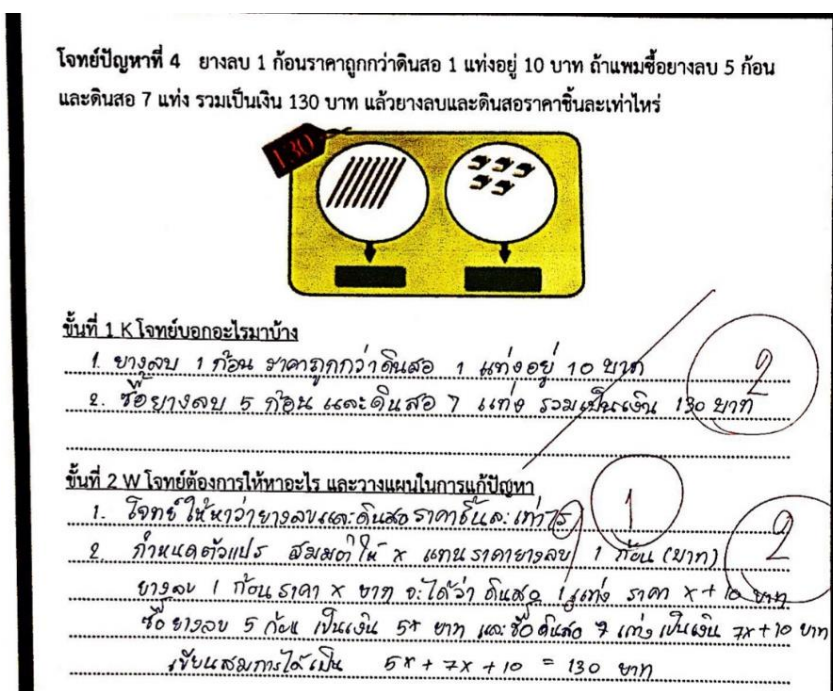 โจทย์ปัญหาที่ 4 ยางลบ 1 ก้อนราคาถูกกว่าดินสอ 1 แท่งอยู่ 10 บาท ถ้าแพมซื้อยางลบ 5 ก้อน
และดินสอ 7 แท่ง รวมเป็นเงิน 130 บาท แล้วยางลบและดินสอราคาชิ้นละเท่าไหร่
130
ขั้นที่ 1 K โจทย์บอกอะไรมาบ้าง
1. ยางลบ 1 ก้อน ราคาถูกกว่าดินสอ 1 แท่งอยู่ 10 บาท
2. ซื้อยางลบ 5 ก้อน และดินสอ 7 แท่ง รวมเป็นเงิน 130 บาท
2
ขั้นที่ 2 W โจทย์ต้องการให้หาอะไร และวางแผนในการแก้ปัญหา
1. โจทย์ให้หาว่ายางลบและดินสอราคาชิ้นละเท่าไร
1
2. กำหนดตัวแปร สมมติให้ x แทนราคายางลบ 1 ก้อน (บาท)
2
ยางลบ 1 ก้อน ราคา x บาท จะได้ว่า ดินสอ 1 แท่ง ราคา x + 10 บาท
ซื้อยางลบ 5 ก้อน เป็นเงิน 5x บาท และซื้อดินสอ 7 แท่ง เป็นเงิน 7x + 10 บาท
เขียนสมการได้เป็น 5x + 7x + 10 = 130 บาท